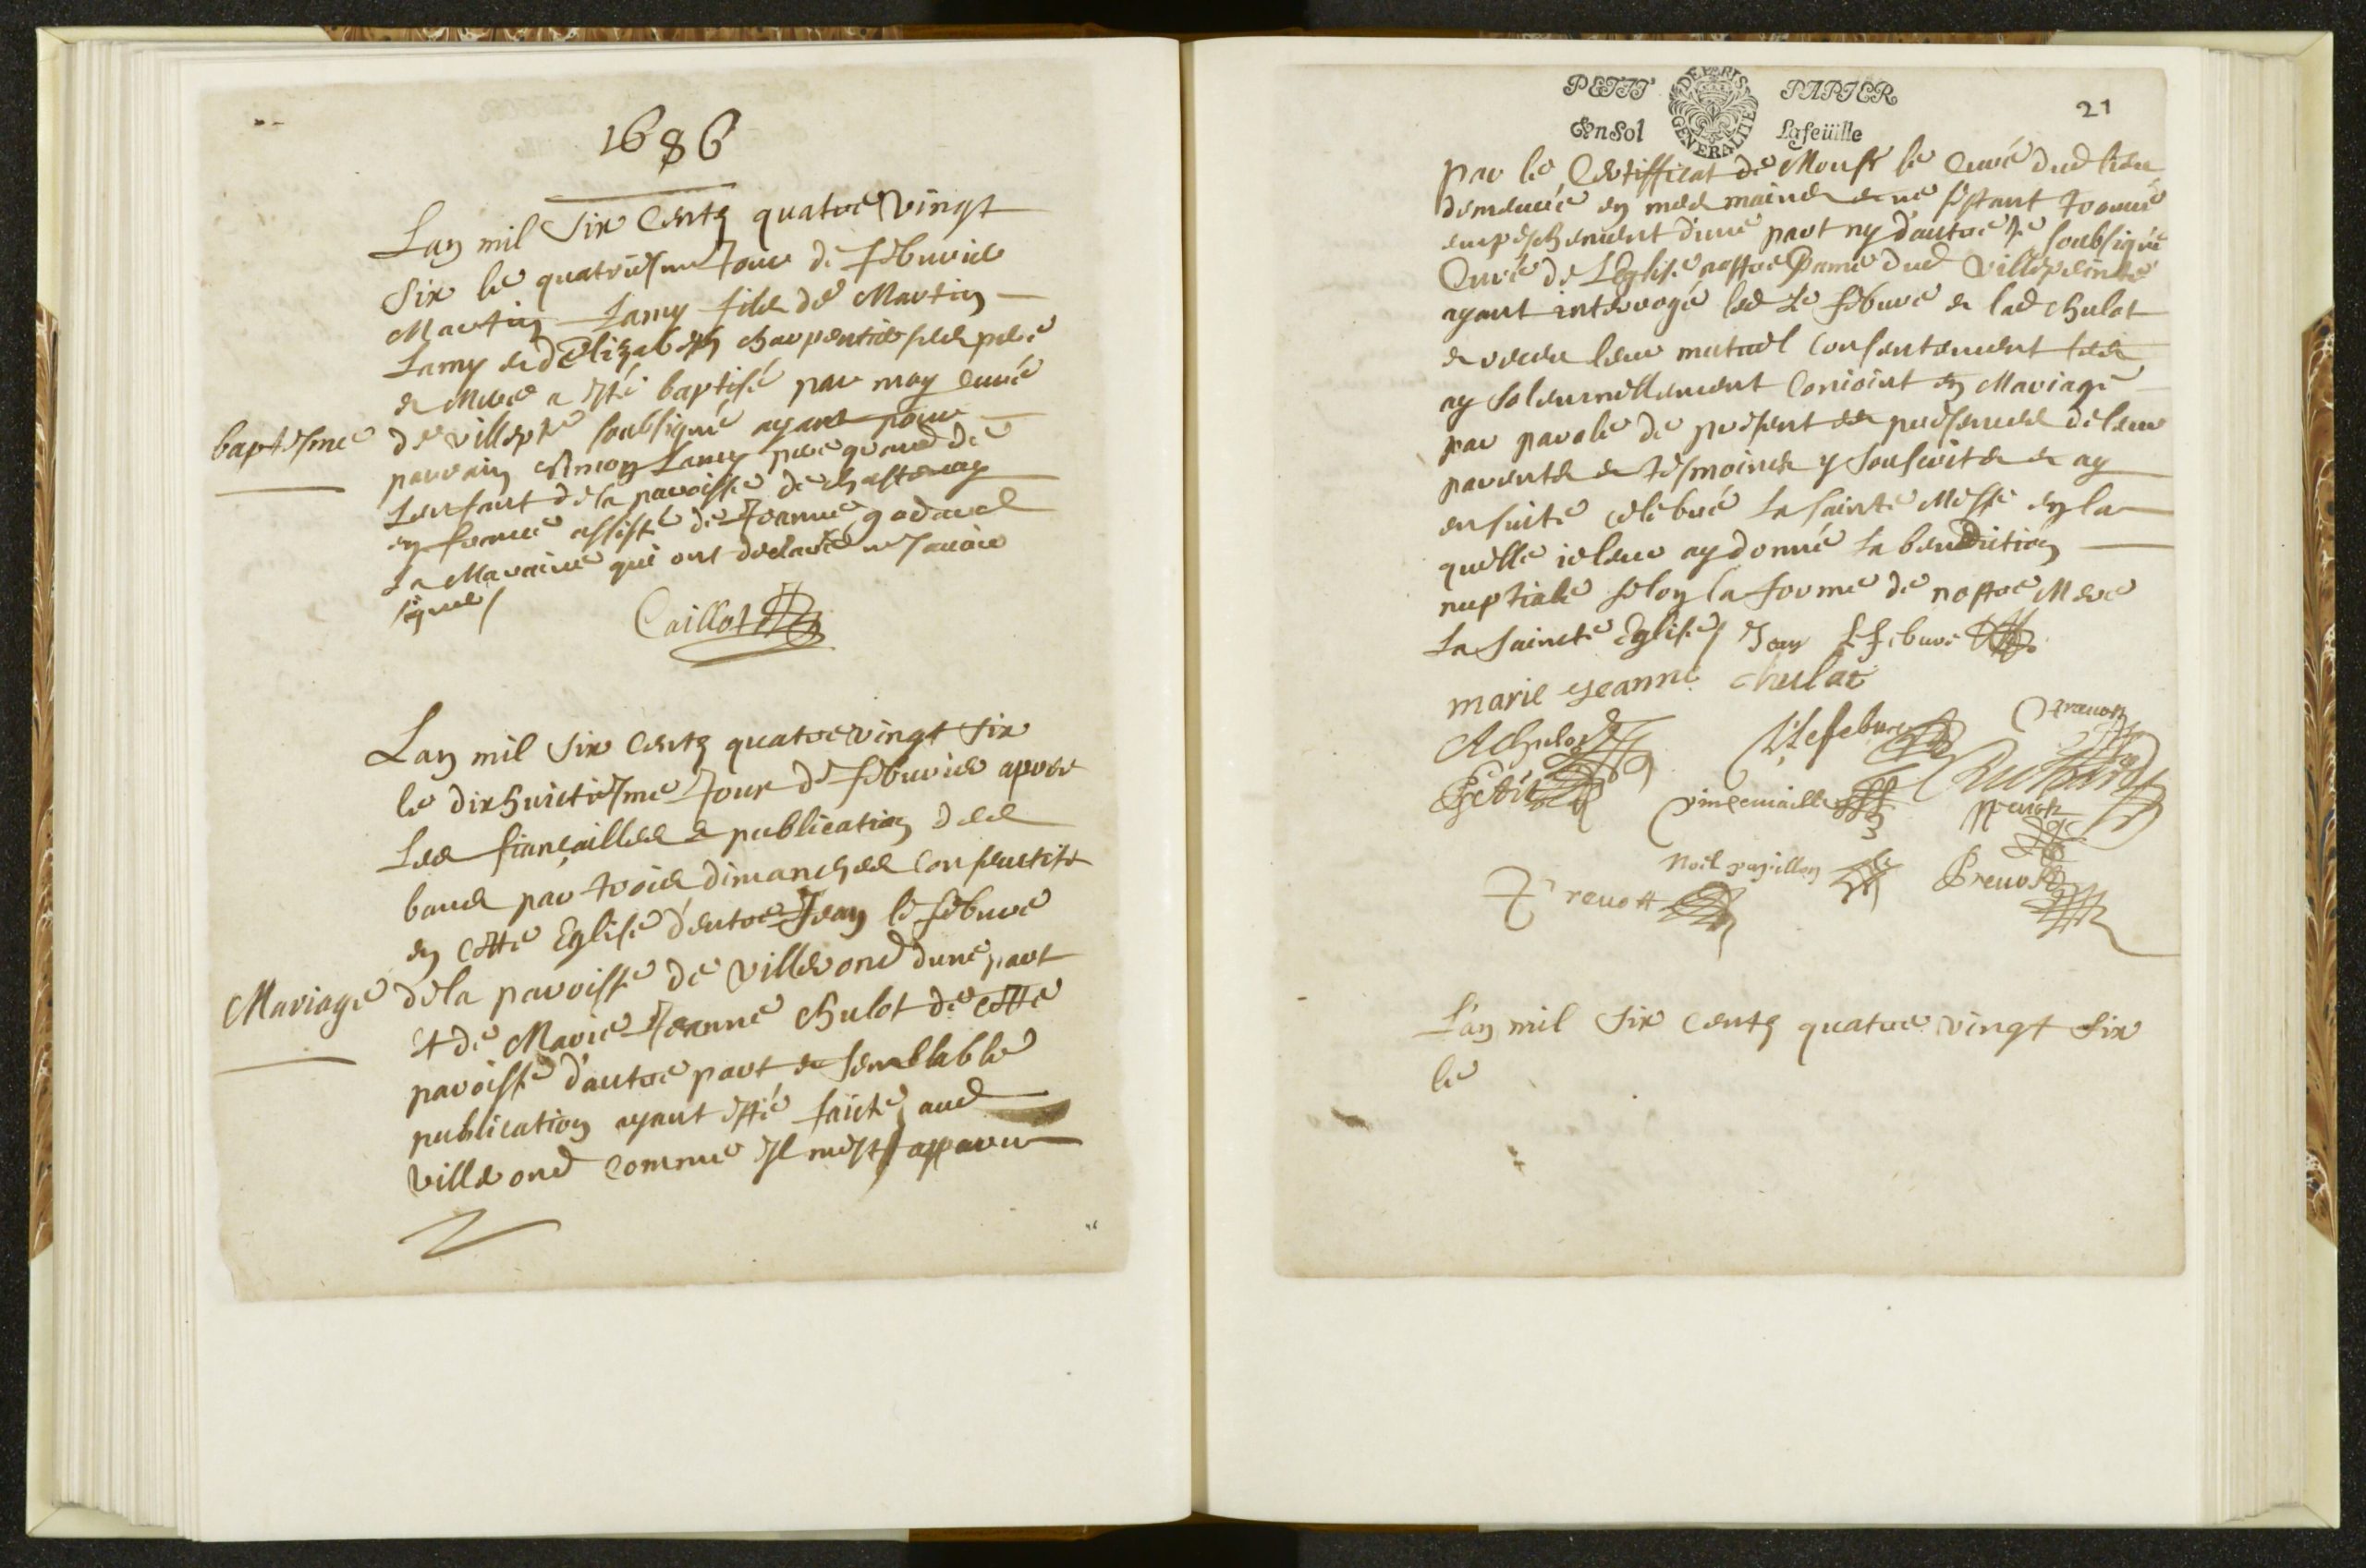 1686
Lan mil Six Centz quatre Vingt
Six le quatriesme Jour de feburier
Martin Lamy filz de Martin
Lamy et dElizabeth Charpentier ses pere
et Mere a esté baptisé par moy Curé
baptesme
de villepte soubsigné ayant pour
parrain Simon Lamy pere grand de
Lenfant de la paroisse de Chastenay
en france assisté de Jeanne
La Maraine qui ont declaré ne scauoir
signer /
Caillot
Lan mil Six Centz quatre vingt Six
le dixhuictiesme Jour de feburier apres
Les fiançailles et publication des
bancs par trois dimanches consecutifs
en cette Eglise d'entre Jean le febure
Mariage
de la paroisse de villeron dune part
et de Marie Jeanne Chulot de cette
paroisse d'autre part et semblable
publication ayant esté faicte aud
villeron comme Il mest apparu
PETIT PAPIER
Un Sol La feüille
GENERALITE DE PARIS
21
par le Certifficat de Monsr le Curé dud lieu
demeuré en mes mains et ne sestant trouué
empeschement dune part ny d'autre Je soubsigné
Curé de L'Eglise nostre Dame dud Villepeinte
ayant interrogé led Le febure et lad Chulot
et receu leur mutuel Consentement les
ay solemnellement Conioint en Mariage
par parole de present es presences de leurs
parents et tesmoings y souscrits et ay
ensuite celebré La sainte Messe en la
quelle ie leur ay donné La benediction
nuptiale selon la forme de nostre Mere
La Saincte Eglise / Jean Lefebure
marie Jeanne chulot
A Chulot Lefebure
Noel papillon
Preuost
Lan mil Six Centz quatre vingt Six
le